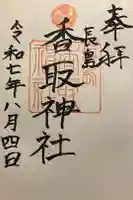 奉拝
長島
香取神社
令和七年八月四日